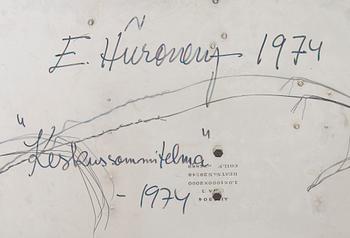 E. Hiironen 1974
"Keskussommitelma"
- 1974